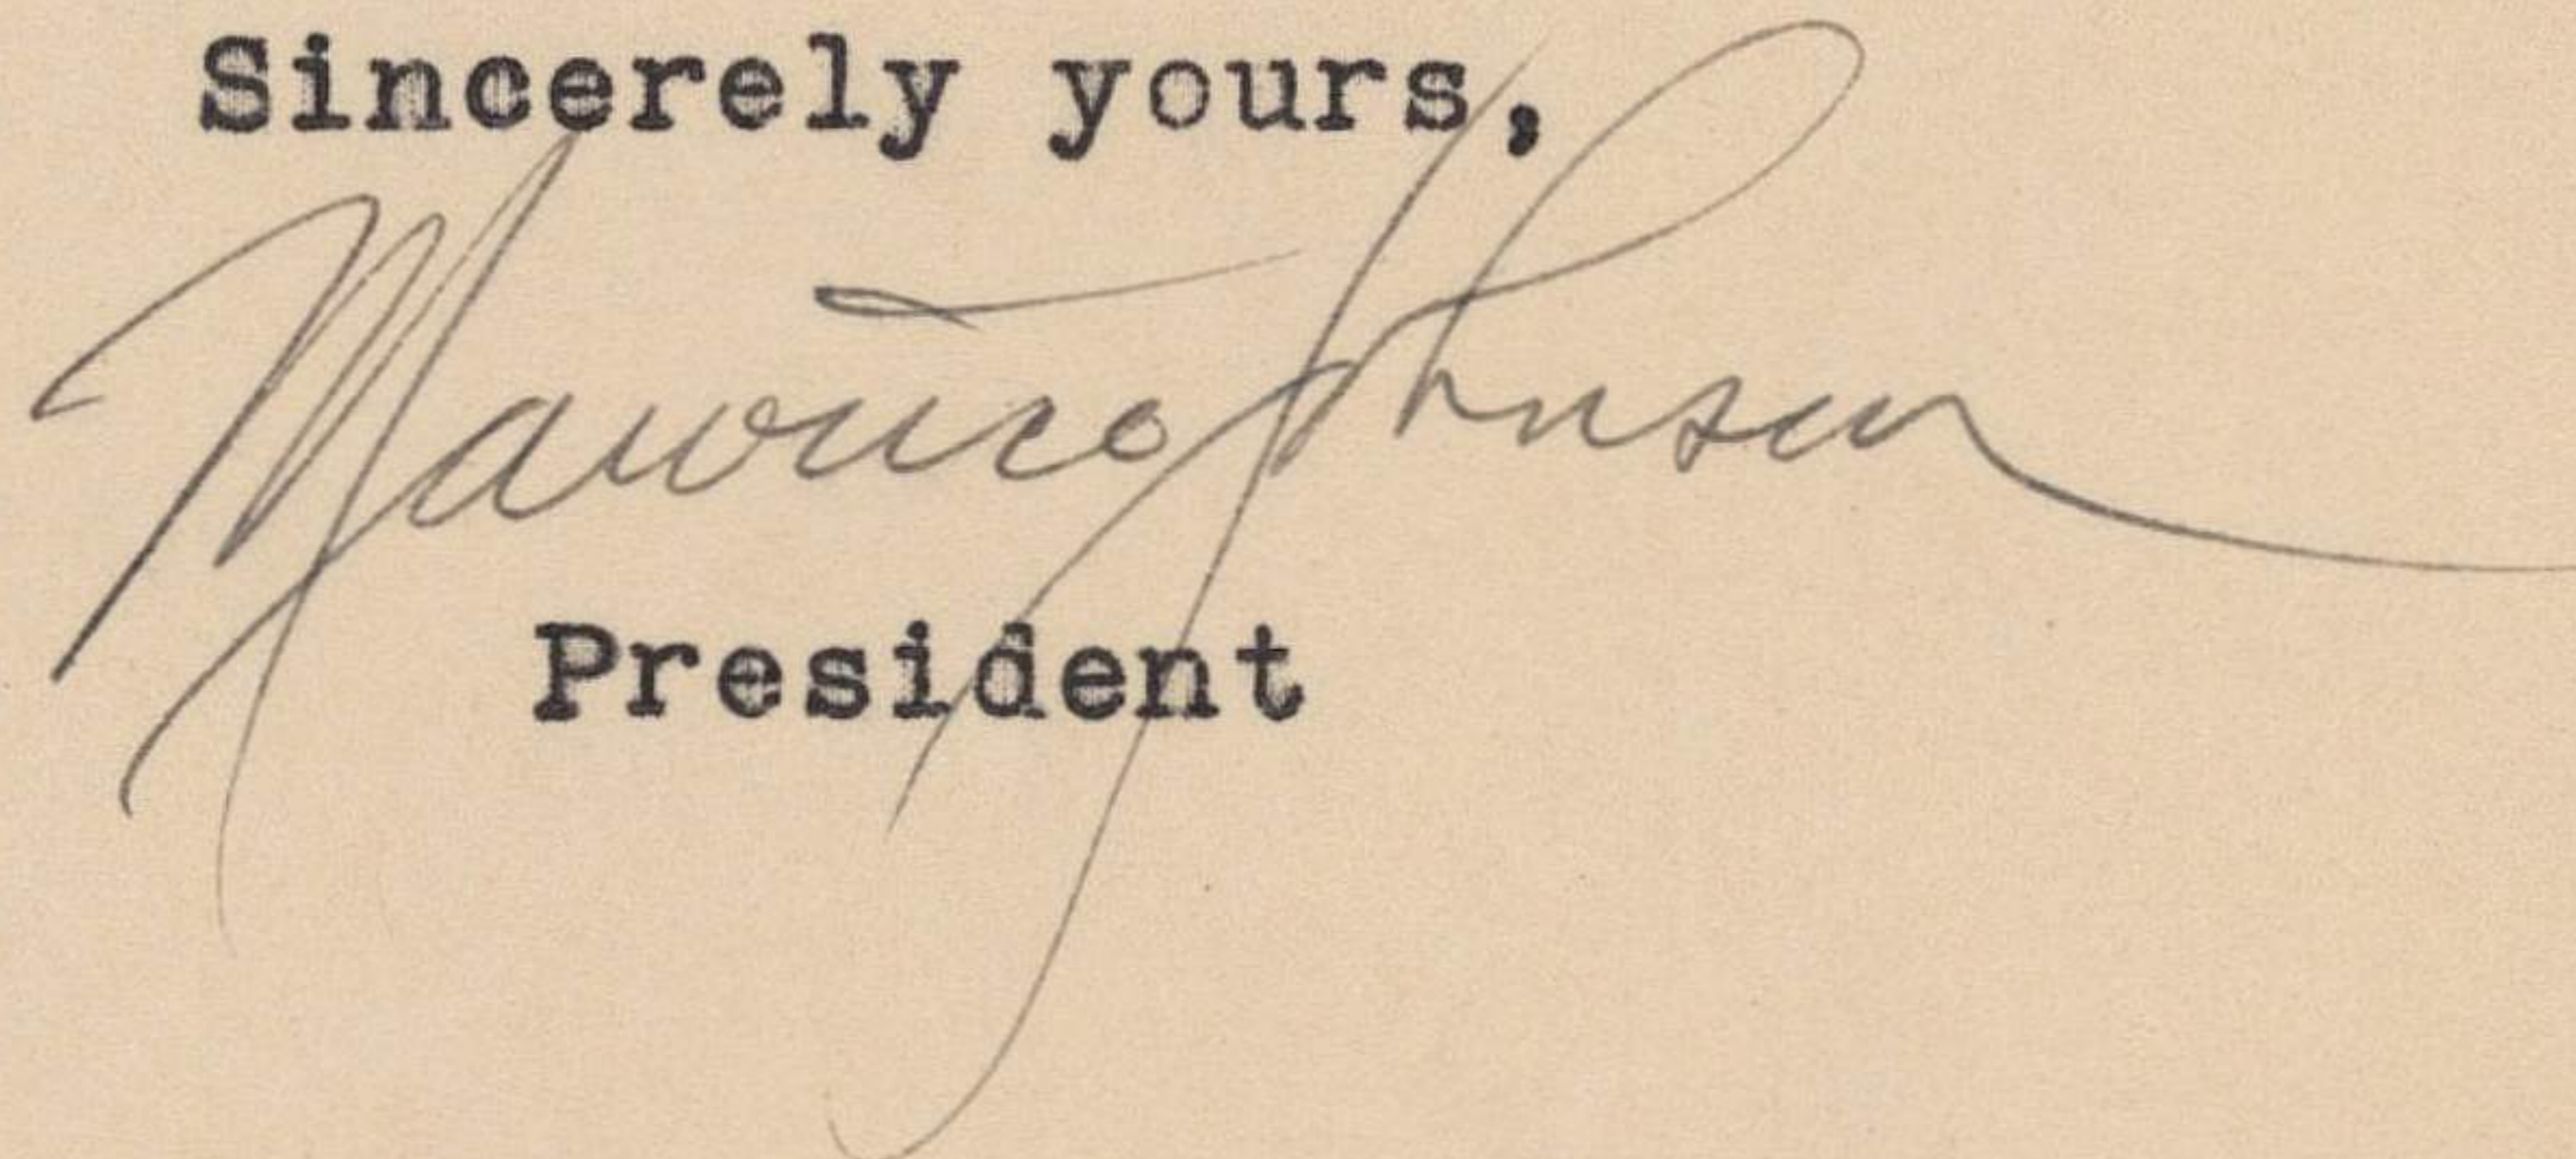 Sincerely yours,
Maurice Johnson
President